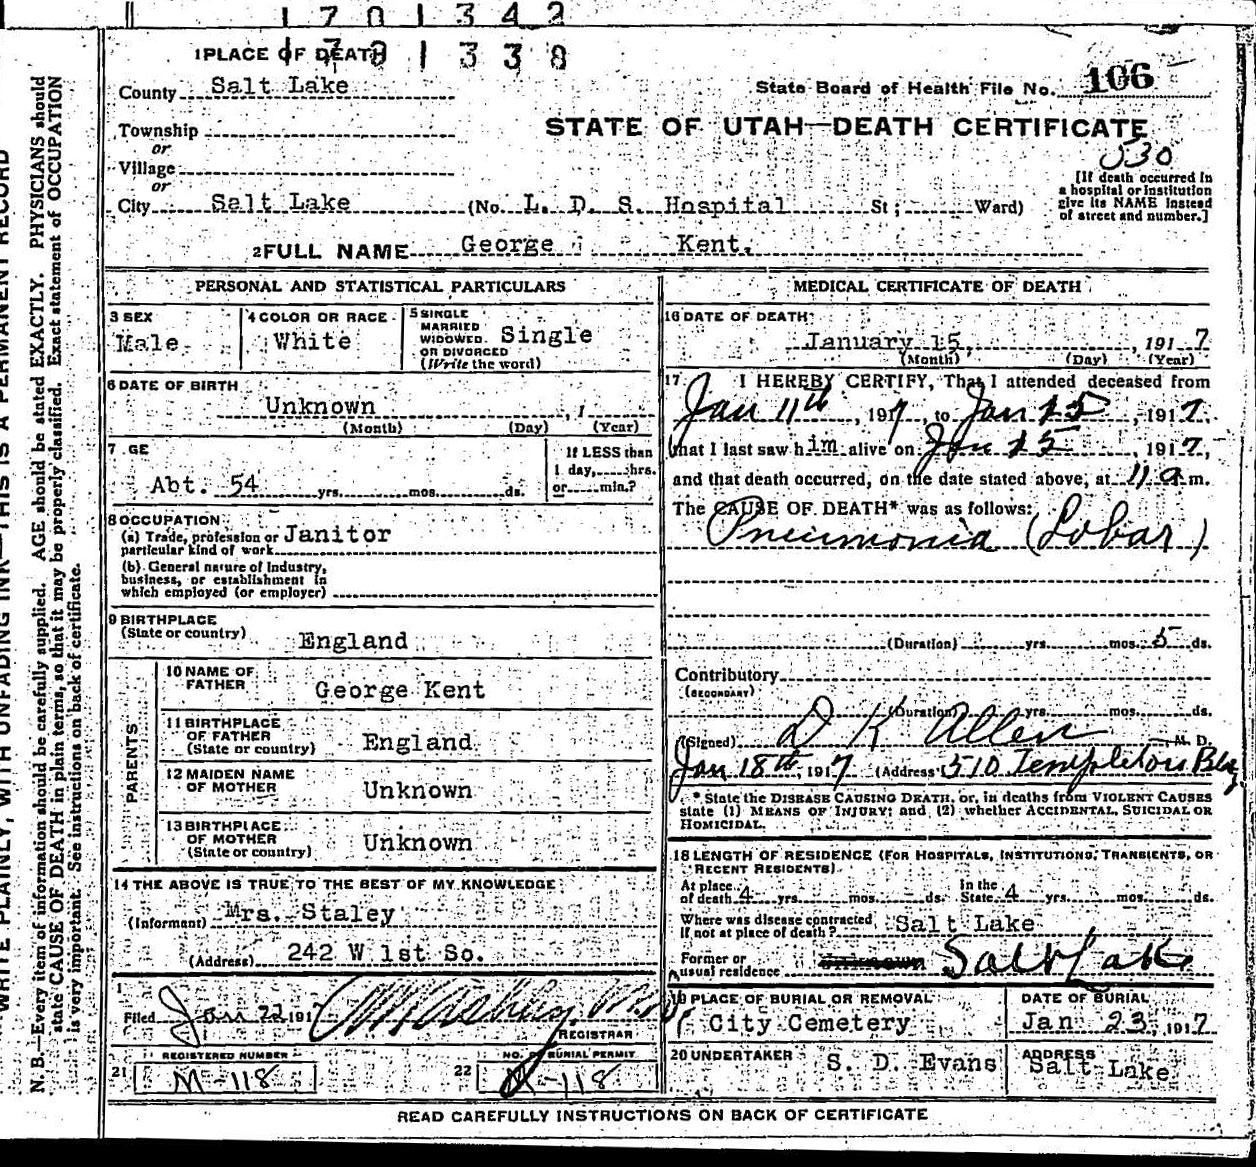 1701342
1701338
1 PLACE OF DEATH
County Salt Lake
State Board of Health File No. 106
Township
or
Village
or
STATE OF UTAH—DEATH CERTIFICATE
530
City Salt Lake (No. L. D. S. Hospital St; Ward)
[If death occurred in a hospital or institution give its NAME instead of street and number.]
2 FULL NAME George Kent.
PERSONAL AND STATISTICAL PARTICULARS
3 SEX Male
4 COLOR OR RACE White
5 SINGLE MARRIED WIDOWED OR DIVORCED (Write the word) Single
6 DATE OF BIRTH
Unknown , 1
(Month) (Day) (Year)
7 GE
Abt. 54 yrs. mos. ds.
If LESS than
1 day, hrs.
or min.?
8 OCCUPATION
(a) Trade, profession or particular kind of work Janitor
(b) General nature of Industry,
business, or establishment in
which employed (or employer)
9 BIRTHPLACE
(State or country) England
PARENTS
10 NAME OF FATHER George Kent
11 BIRTHPLACE OF FATHER (State or country) England
12 MAIDEN NAME OF MOTHER Unknown
13 BIRTHPLACE OF MOTHER (State or country) Unknown
14 THE ABOVE IS TRUE TO THE BEST OF MY KNOWLEDGE
(Informant) Mrs. Staley
(Address) 242 W 1st So.
Filed Jan 22 191
REGISTRAR
21 REGISTERED NUMBER M-118
22 NO. BURIAL PERMIT M-118
MEDICAL CERTIFICATE OF DEATH
16 DATE OF DEATH
January 15, 191 7
(Month) (Day) (Year)
17 I HEREBY CERTIFY, That I attended deceased from
Jan 11th, 1917, to Jan 15, 1917.
that I last saw him alive on Jan 15, 1917,
and that death occurred, on the date stated above, at 11 a m.
The CAUSE OF DEATH* was as follows:
Pneumonia (Lobar)
(Duration) yrs. mos. 5 ds.
Contributory
(SECONDARY)
(Duration) yrs. mos. ds.
(Signed) D K Allen M. D.
Jan 18th, 1917 (Address 510 Templeton Bldg
* State the DISEASE CAUSING DEATH, or, in deaths from VIOLENT CAUSES
state (1) MEANS OF INJURY; and (2) whether ACCIDENTAL, SUICIDAL OR
HOMICIDAL.
18 LENGTH OF RESIDENCE (FOR HOSPITALS, INSTITUTIONS, TRANSIENTS, OR
RECENT RESIDENTS)
At place of death 4 yrs. mos. ds. In the State 4 yrs. mos. ds.
Where was disease contracted If not at place of death? Salt Lake
Former or usual residence Salt Lake
19 PLACE OF BURIAL OR REMOVAL
City Cemetery
DATE OF BURIAL
Jan 23, 1917
20 UNDERTAKER S. D. Evans
ADDRESS
Salt Lake
READ CAREFULLY INSTRUCTIONS ON BACK OF CERTIFICATE
WRITE PLAINLY, WITH UNFADING INK—THIS IS A PERMANENT RECORD
N. B.—Every item of information should be carefully supplied. AGE should be stated EXACTLY. PHYSICIANS should
state CAUSE OF DEATH in plain terms, so that it may be properly classified. Exact statement of OCCUPATION
is very important. See instructions on back of certificate.